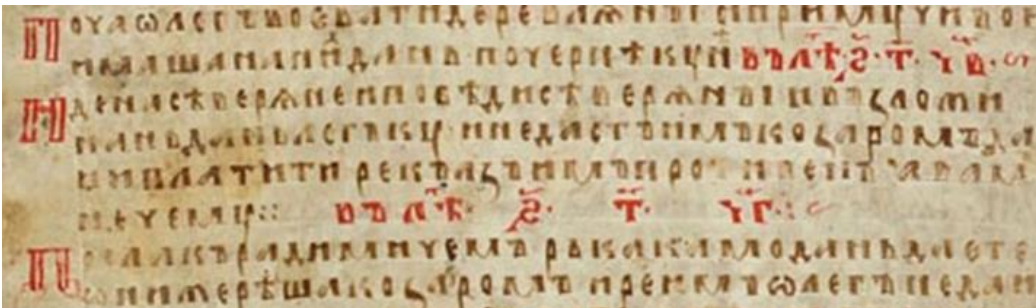 Поча ѡлегъ воевати деревлѧны и примꙋчи
имаша на ни дань по чернѣ кꙋнѣ въ лѣ҃ ҂ѕ҃ · т҃ · ч҃в ·
Иде на сѣверѧне и побѣди сѣверѧны и възложи
на нь дань легъкꙋ и не дасть имъ козаромъ да
ни платити рекъ азъ имъ противенъ а вамъ
не чемꙋ ⁘ въ лѣ҃ · ҂ѕ҃ · т҃ · ч҃г ·
Посла къ радимичемъ рька камо дань даете
ѡни же рѣша козаромъ и рече имъ ѡлегъ не даи